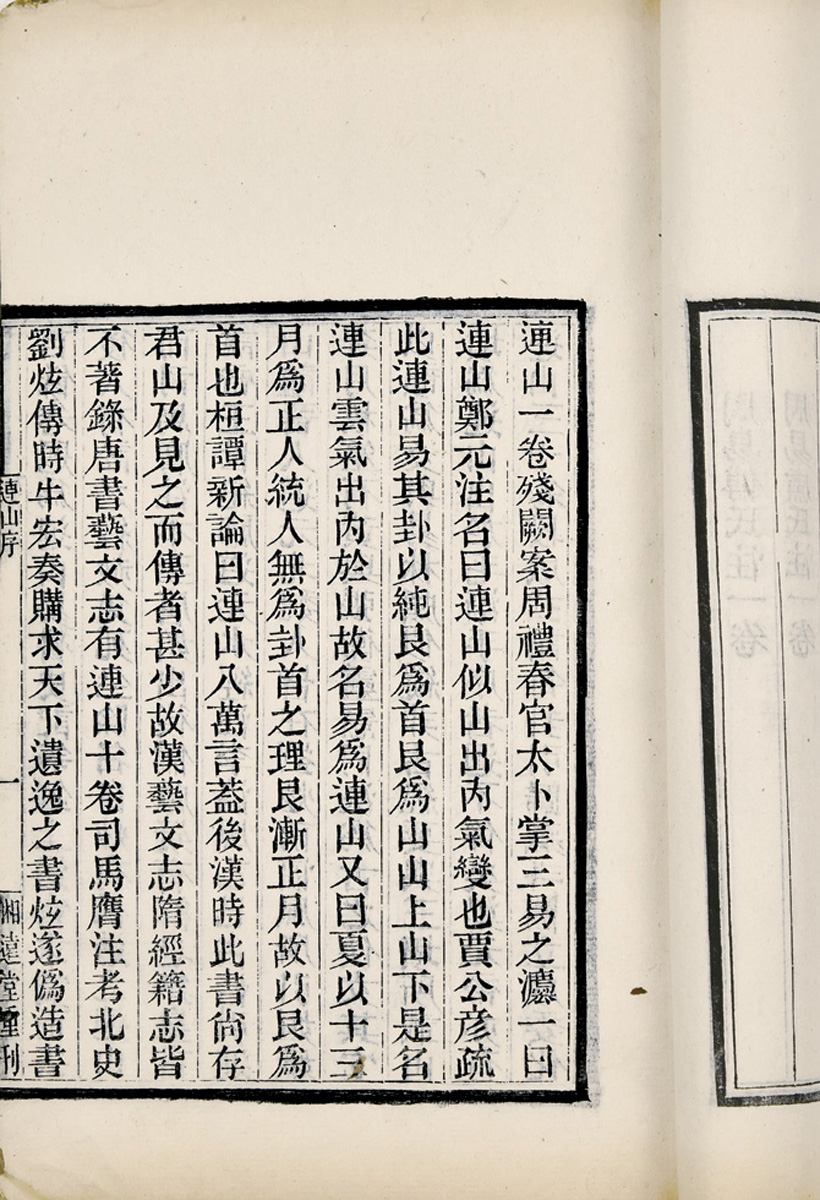 連山一卷殘闕案周禮春官太卜掌三易之灋一曰
連山鄭元注名曰連山似山出內氣變也賈公彦疏
此連山易其卦以純艮爲首艮爲山山上山下是名
連山雲氣出內於山故名易爲連山又曰夏以十三
月爲正人統人無爲卦首之理艮漸正月故以艮爲
首也桓譚新論曰連山八萬言葢後漢時此書尙存
君山及見之而傳者甚少故漢藝文志隋經籍志皆
不著錄唐書藝文志有連山十卷司馬膺注考北史
劉炫傳時牛宏奏購求天下遺逸之書炫遂僞造書
連山序
一
堂重刊